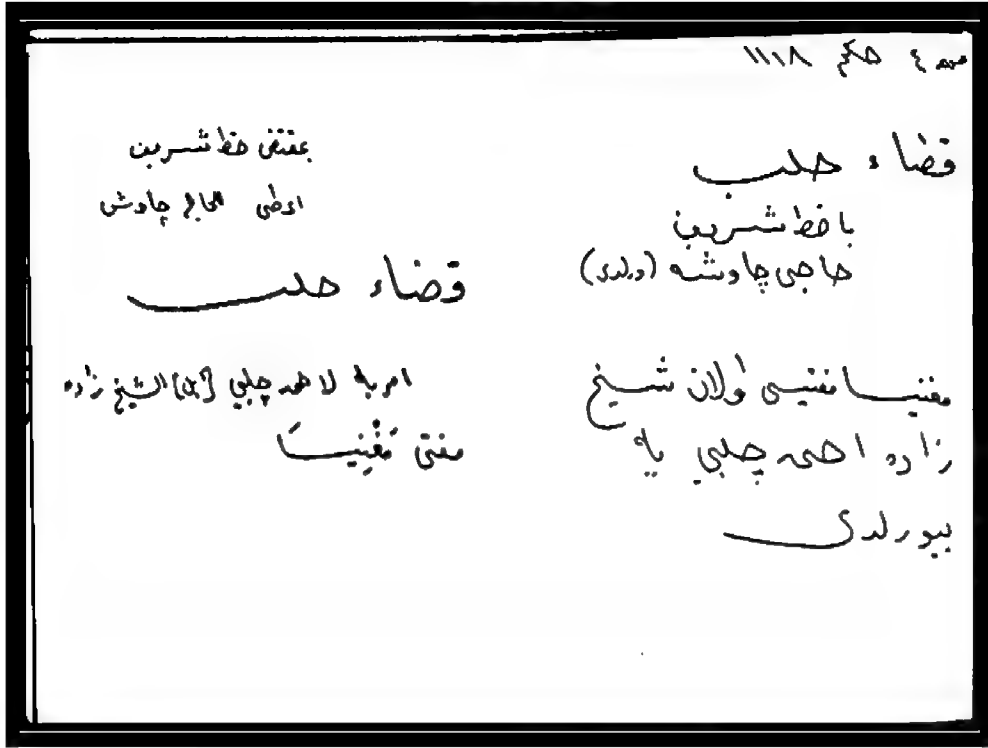 مهمه ٤ حكم ١١١٨
قضاء حلب
با خط شريف
حاجى چاوشه (ويرلدى)
مغنيسا مفتيسى اولان شيخ
زاده احمد چلبي يه
بيورلدى
بمقتضى خط شريف
اعطى الحاج چاوش
قضاء حلب
امر به لاحمد چلبي [ابن] الشيخ زاده
مفتى مَغْنِيسَا